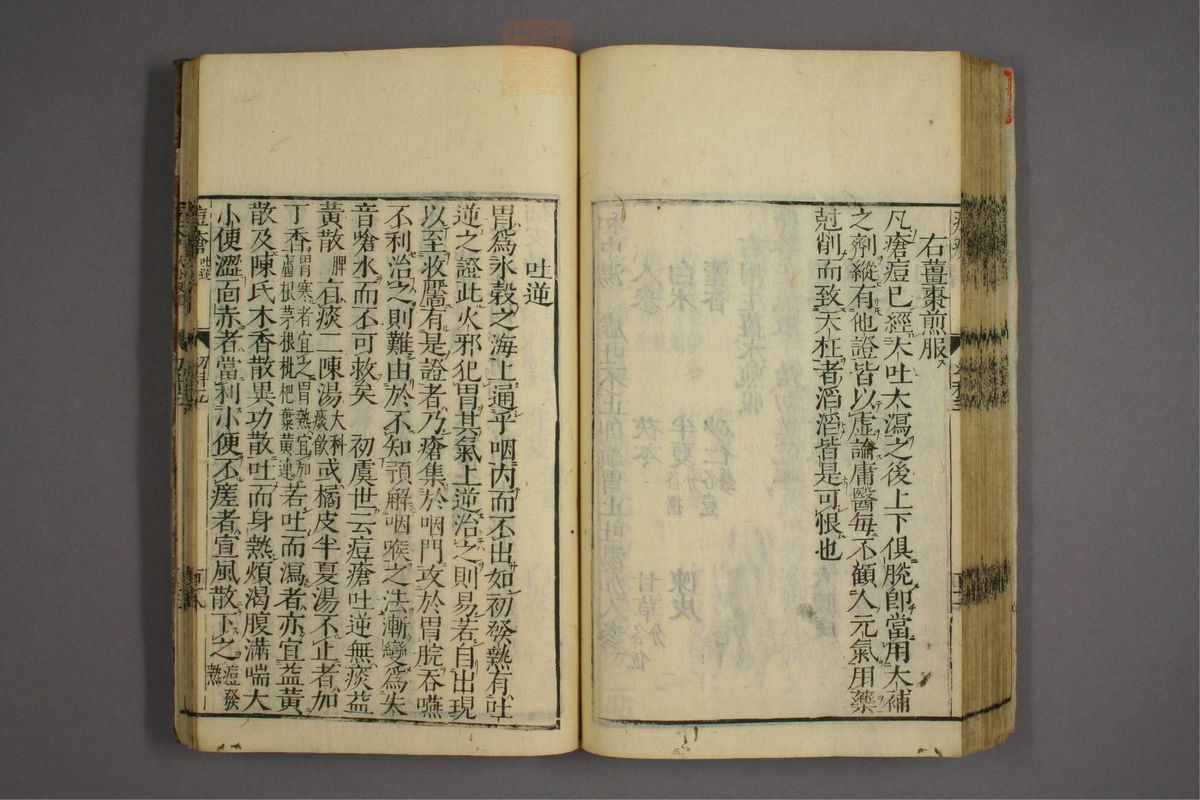 右薑棗煎服
凡瘡痘已經大吐大瀉之後上下俱脫卽當用大補
之劑縱有他證皆以虛論庸醫每不顧人元氣用藥
尅削而致夭枉者滔滔皆是可恨也
吐逆
胃爲水穀之海上通乎咽內而不出如初發熱有吐
逆之證此火邪犯胃其氣上逆治之則易若自出現
以至收靨有是證者乃瘡集於咽門攻於胃脘吞嚥
不利治之則難由於不知預解咽喉之法漸變爲失
音嗆水而不可救矣 初虞世云痘瘡吐逆無痰益
黃散脾有痰二陳湯大科痰飮或橘皮半夏湯不止者加
丁香胃寒者宜之胃熱宜加蘆根茅根枇杷葉黃連若吐而瀉者亦宜益黃
散及陳氏木香散異功散吐而身熱煩渴腹滿喘大
小便澀面赤者當利小便不瘥者宣風散下之痘發熱
痘瘡 吐逆